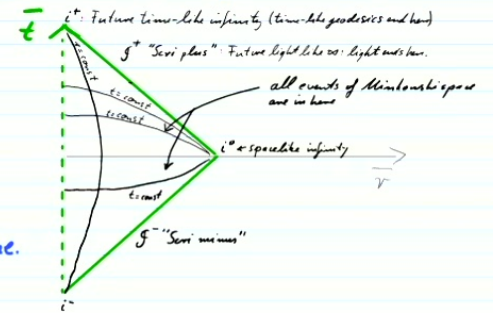 t̄
i⁺: Future time-like infinity (time-like geodesics end here)
𝒥⁺ "Scri plus": Future light like ∞: light ends here.
r=const
t=const
t=const
all events of Minkowski space
are in here
i⁰ spacelike infinity
r̄
t=const
𝒥⁻ "Scri minus"
e.
i⁻